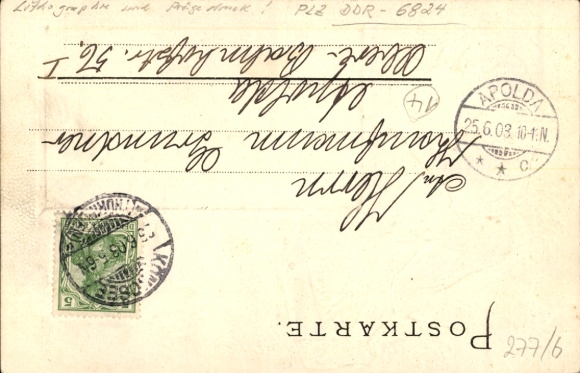 Lithographie und Prägedruck! PLZ DDR-6824
POSTKARTE.
An Herrn
Kaufmann Grundner
Apolda
Obere Bahnhofstr. 56, I
14
APOLDA
25.6.03.10-11N.
* * c.
5
277/6